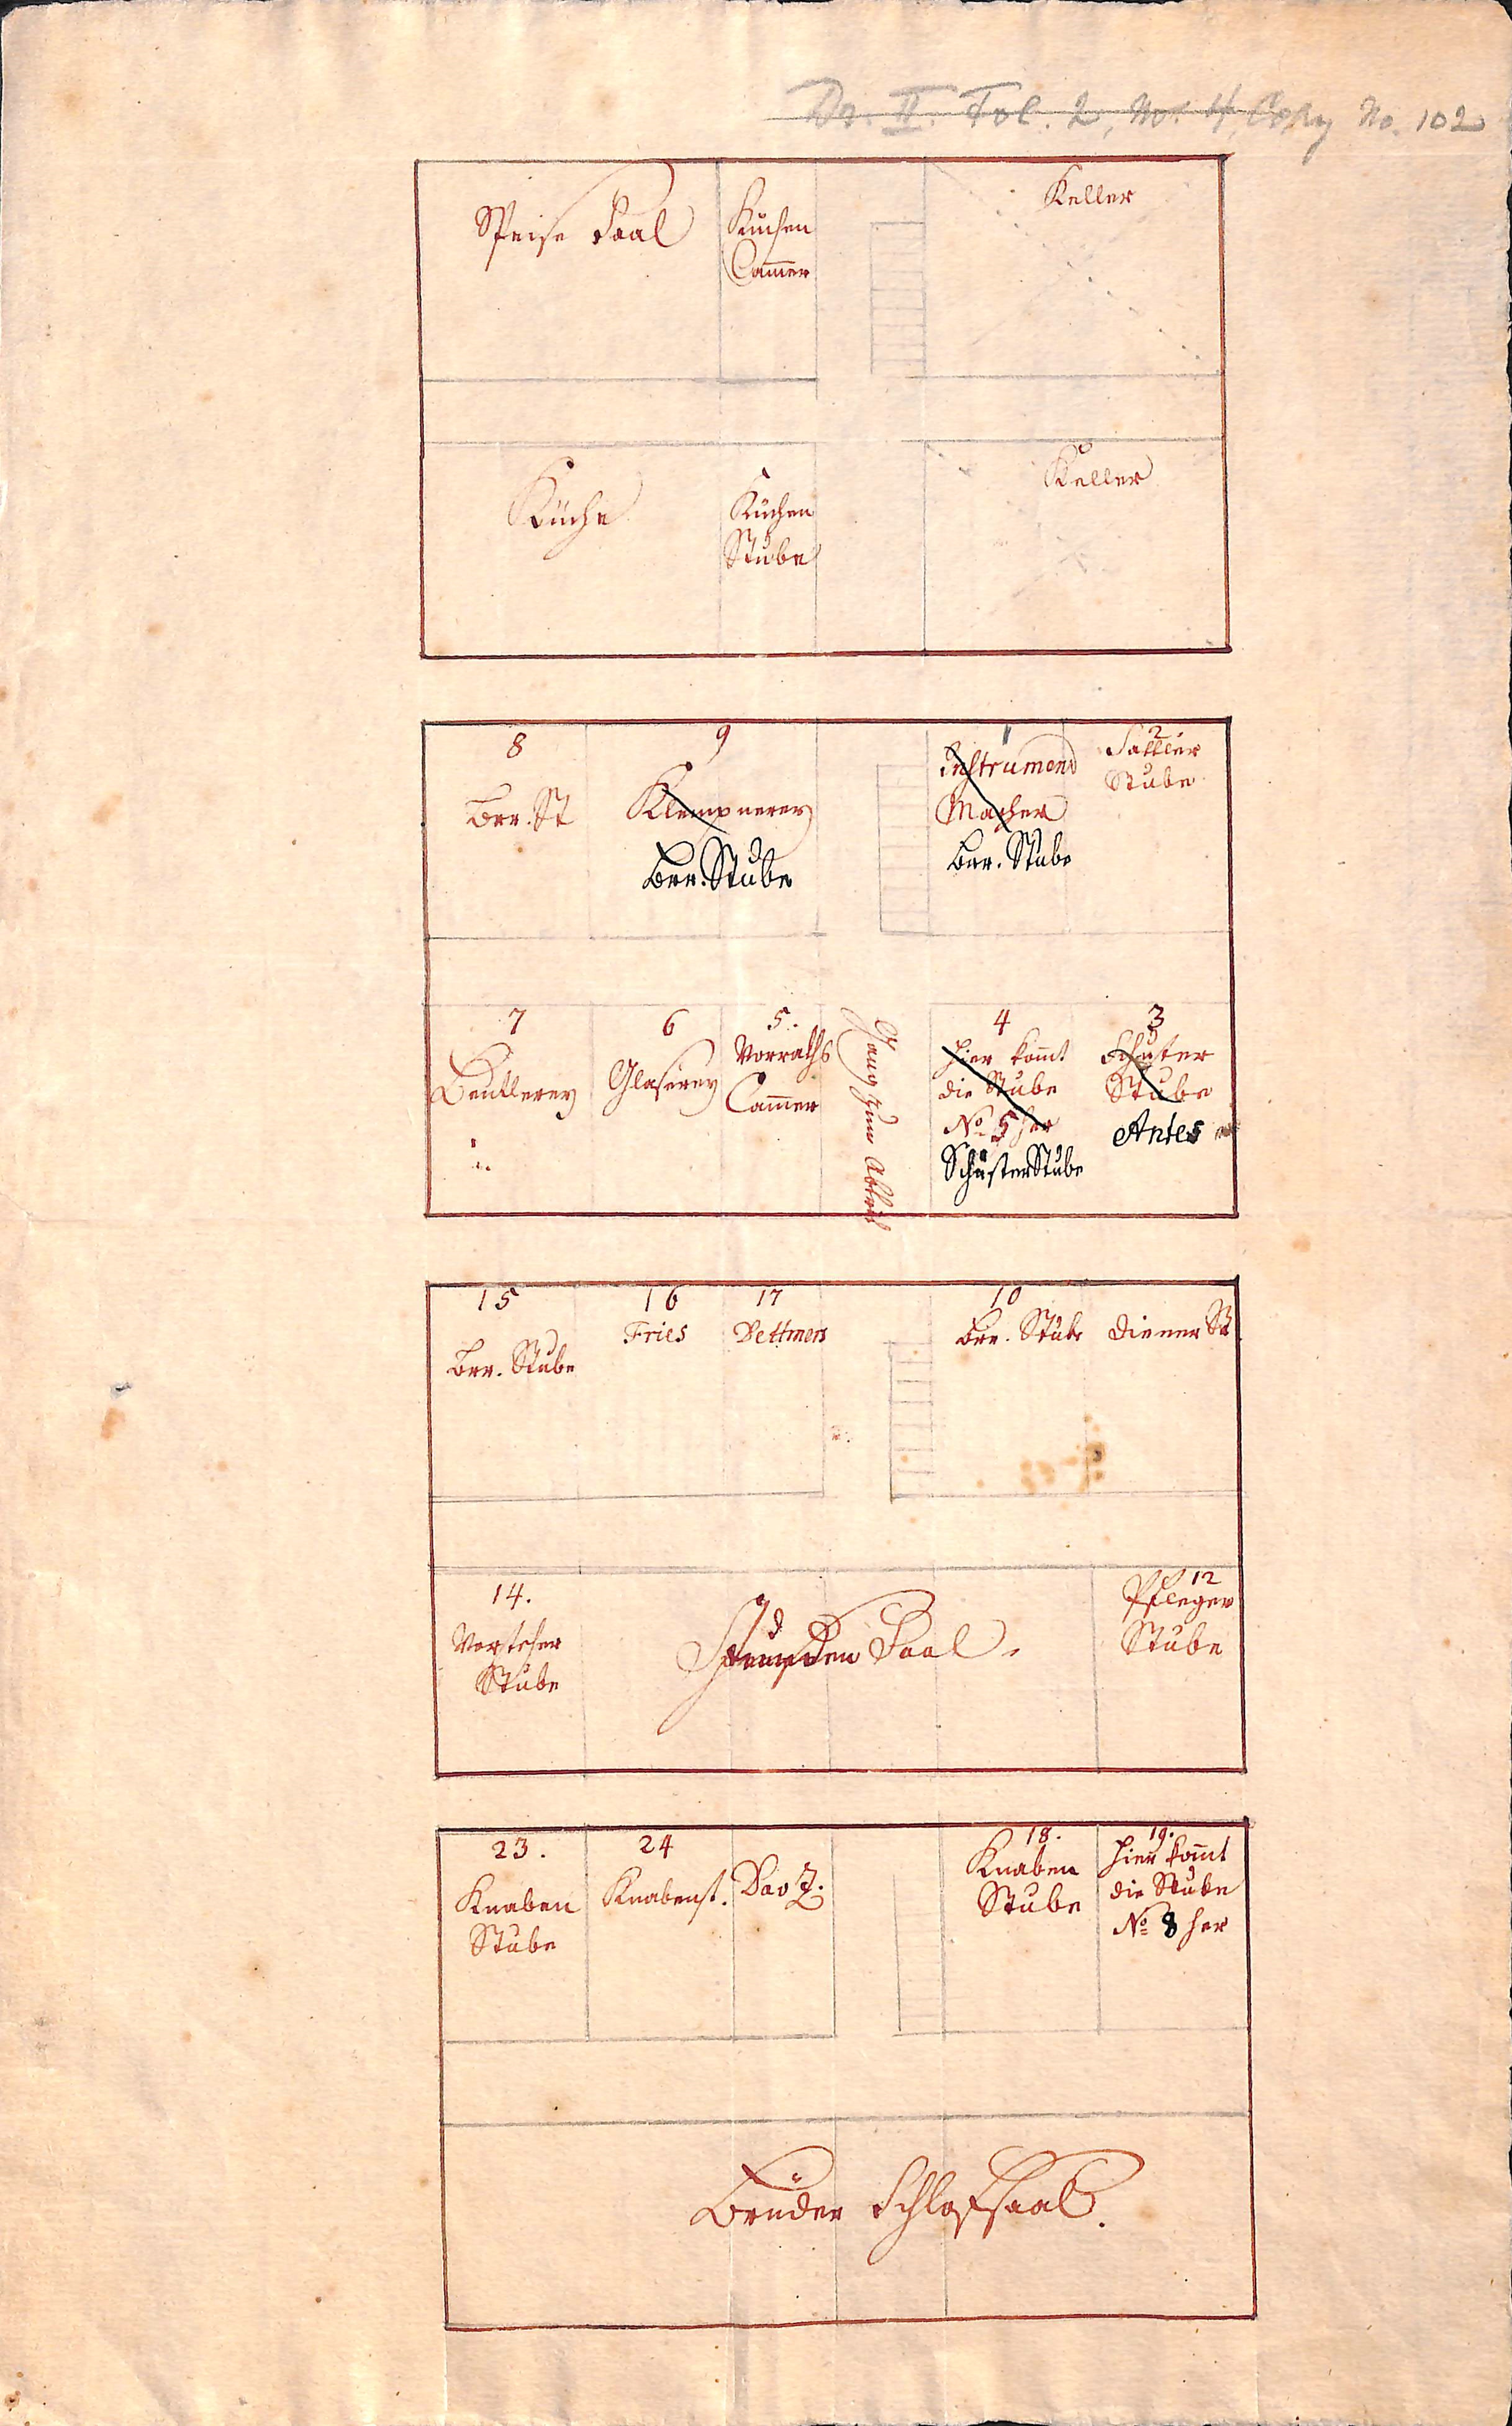 Dr. II. Fol. 2, No. 4, Copy No. 102
Speise Saal
Küchen
Cam̄er
Keller
Küche
Küchen
Stube
Keller
8
Brr. St
9
Klempnerey
Brr. Stube
1
Instrument
Macher
Brr. Stube
2
Sattler
Stube
7
Beutlerey
6
Glaserey
5.
Vorraths
Cam̄er
Gang zum Abtritt
4
hier kom̄t
die Stube
No 5 her
Schuster Stube
3
Schuster
Stube
Antes
15
Brr. Stube
16
Fries
17
Dettmers
10
Brr. Stube
Diener St
14.
Vorsteher
Stube
Saal
12
Pfleger
Stube
23.
Knaben
Stube
24
Knabenst.
Dav Z.
18.
Knaben
Stube
19.
hier kom̄t
die Stube
No 8 her
Brüder Schlafsaal.